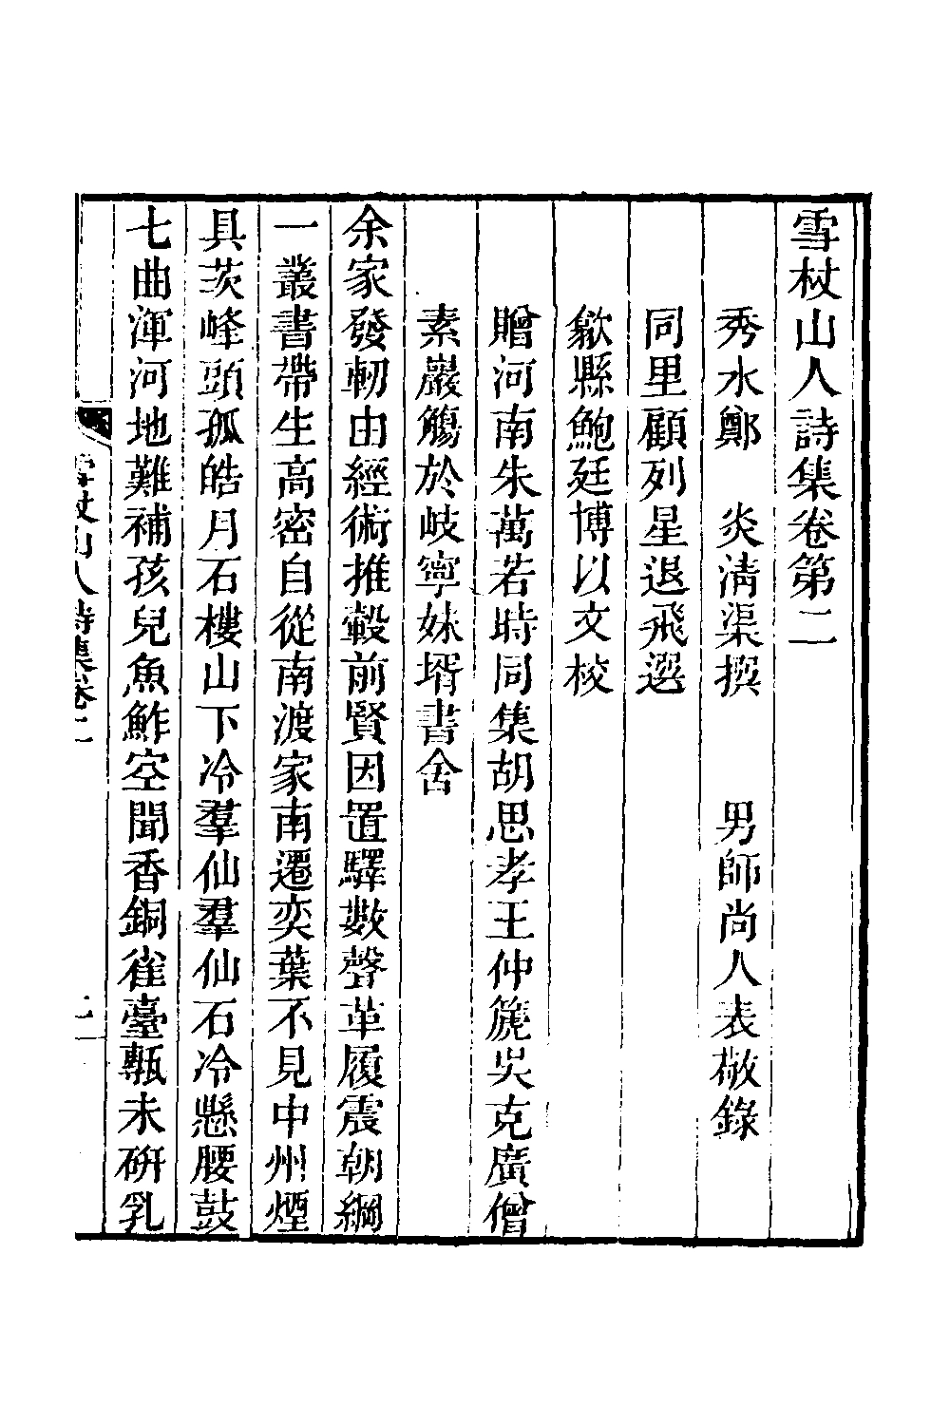 雪杖山人詩集卷第二
秀水鄭　炎清渠撰　男師尚人表敬錄
同里顧列星退飛選
歙縣鮑廷博以文校
贈河南朱萬若時同集胡思孝王仲篪吳克廣僧
素巖觴於岐寧妹壻書舍
余家發軔由經術推轂前賢因置驛數聲革履震朝綱
一叢書帶生高密自從南渡家南遷奕葉不見中州煙
具茨峰頭孤皓月石樓山下冷羣仙羣仙石冷懸腰鼓
七曲渾河地難補孩兒魚鮓空聞香銅雀臺甎未硏乳
雪杖山人詩集卷二